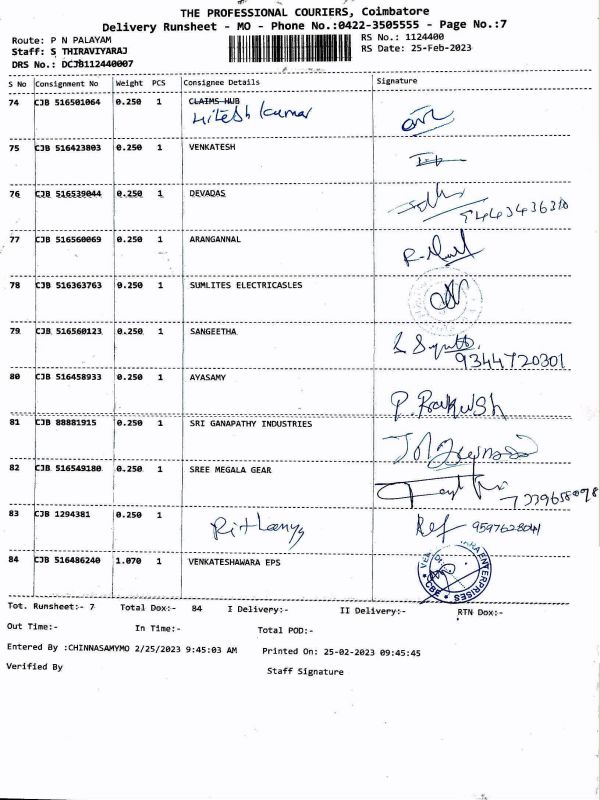 THE PROFESSIONAL COURIERS, Coimbatore
Delivery Runsheet - MO - Phone No.:0422-3505555 - Page No.:7
Route: P N PALAYAM
RS No.: 1124400
Staff: S THIRAVIYARAJ
RS Date: 25-Feb-2023
DRS No.: DCJB112440007
S No Consignment No Weight PCS Consignee Details Signature
74 CJB 516501064 0.250 1 CLAIMS HUB
Hitesh kumar
75 CJB 516423803 0.250 1 VENKATESH
76 CJB 516539044 0.250 1 DEVADAS
9443436310
77 CJB 516560069 0.250 1 ARANGANNAL
78 CJB 516363763 0.250 1 SUMLITES ELECTRICASLES
79 CJB 516560123 0.250 1 SANGEETHA
9344720301
80 CJB 516458933 0.250 1 AYASAMY
P. Prakash
81 CJB 88881915 0.250 1 SRI GANAPATHY INDUSTRIES
82 CJB 516549180 0.250 1 SREE MEGALA GEAR
83 CJB 1294381 0.250 1
84 CJB 516486240 1.070 1 VENKATESHAWARA EPS
ENTERPRISES
CBE
Tot. Runsheet:- 7 Total Dox:- 84 I Delivery:- II Delivery:- RTN Dox:-
Out Time:- In Time:- Total POD:-
Entered By :CHINNASAMYMO 2/25/2023 9:45:03 AM Printed On: 25-02-2023 09:45:45
Verified By Staff Signature